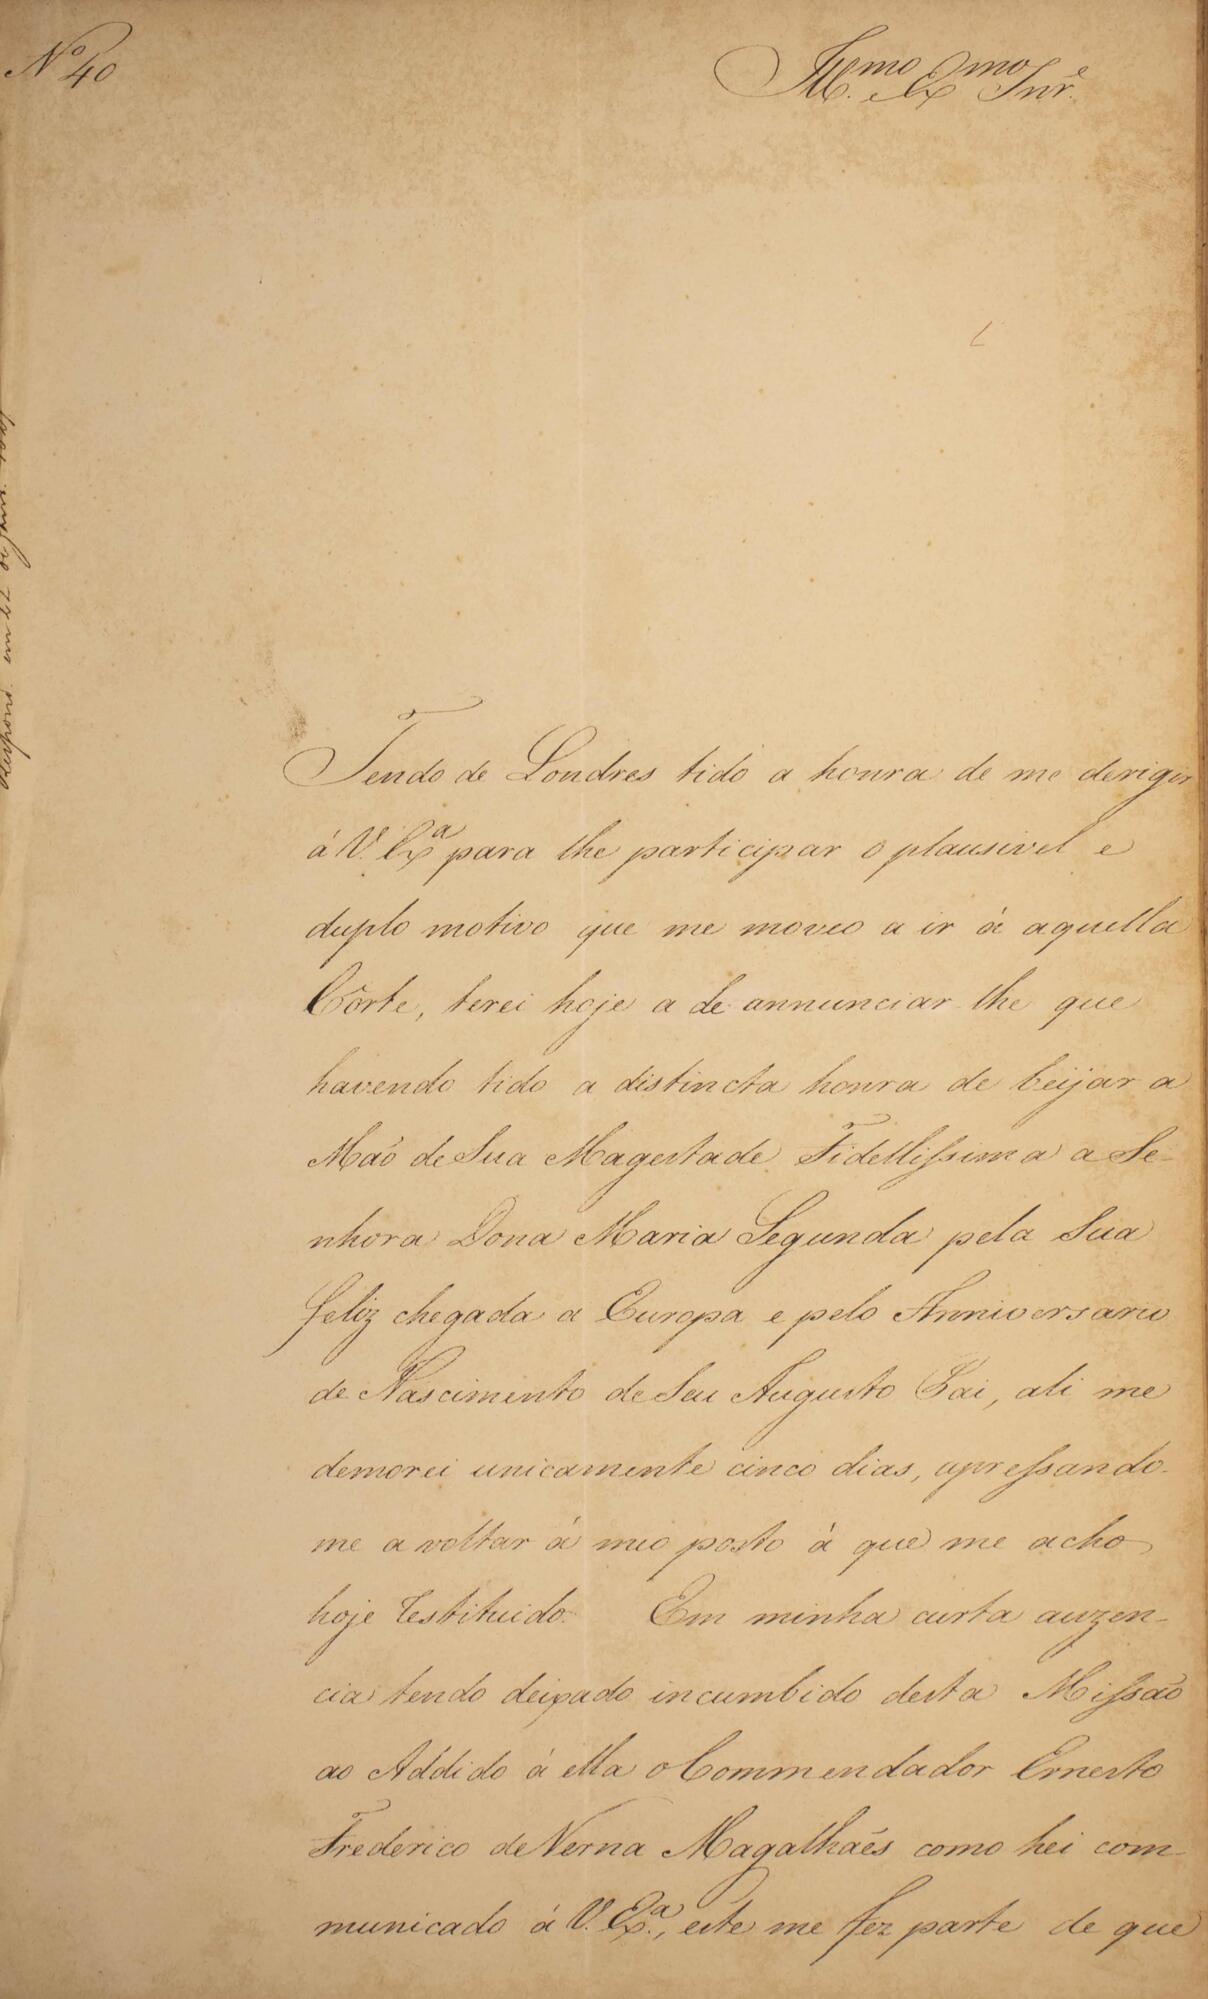 Nº 40
Illmo. e Exmo Snr.e
Respond. em 22 de Janr.
Tendo de Londres tido a honra de me derigir
á V. Exª para lhe participar o plausivel e
duplo motivo que me moveo a ir á aquella
Côrte, terei hoje a de annunciar-lhe que
havendo tido a distincta honra de beijar a
Maõ de Sua Magestade Fidellissima a Se-
nhora Dona Maria Segunda pela Sua
feliz chegada a Europa e pelo Anniversario
de Nascimento de Seu Augusto Pai, ali me
demorei unicamente cinco dias, apressando-
me a voltar á meo posto á que me acho
hoje restituido. Em minha curta auzen-
cia tendo deixado incumbido desta Missaõ
ao Addido á ella o Commendador Ernesto
Frederico de Verna Magalhaẽs como hei com-
municado á V. Exª., este me fez parte de que